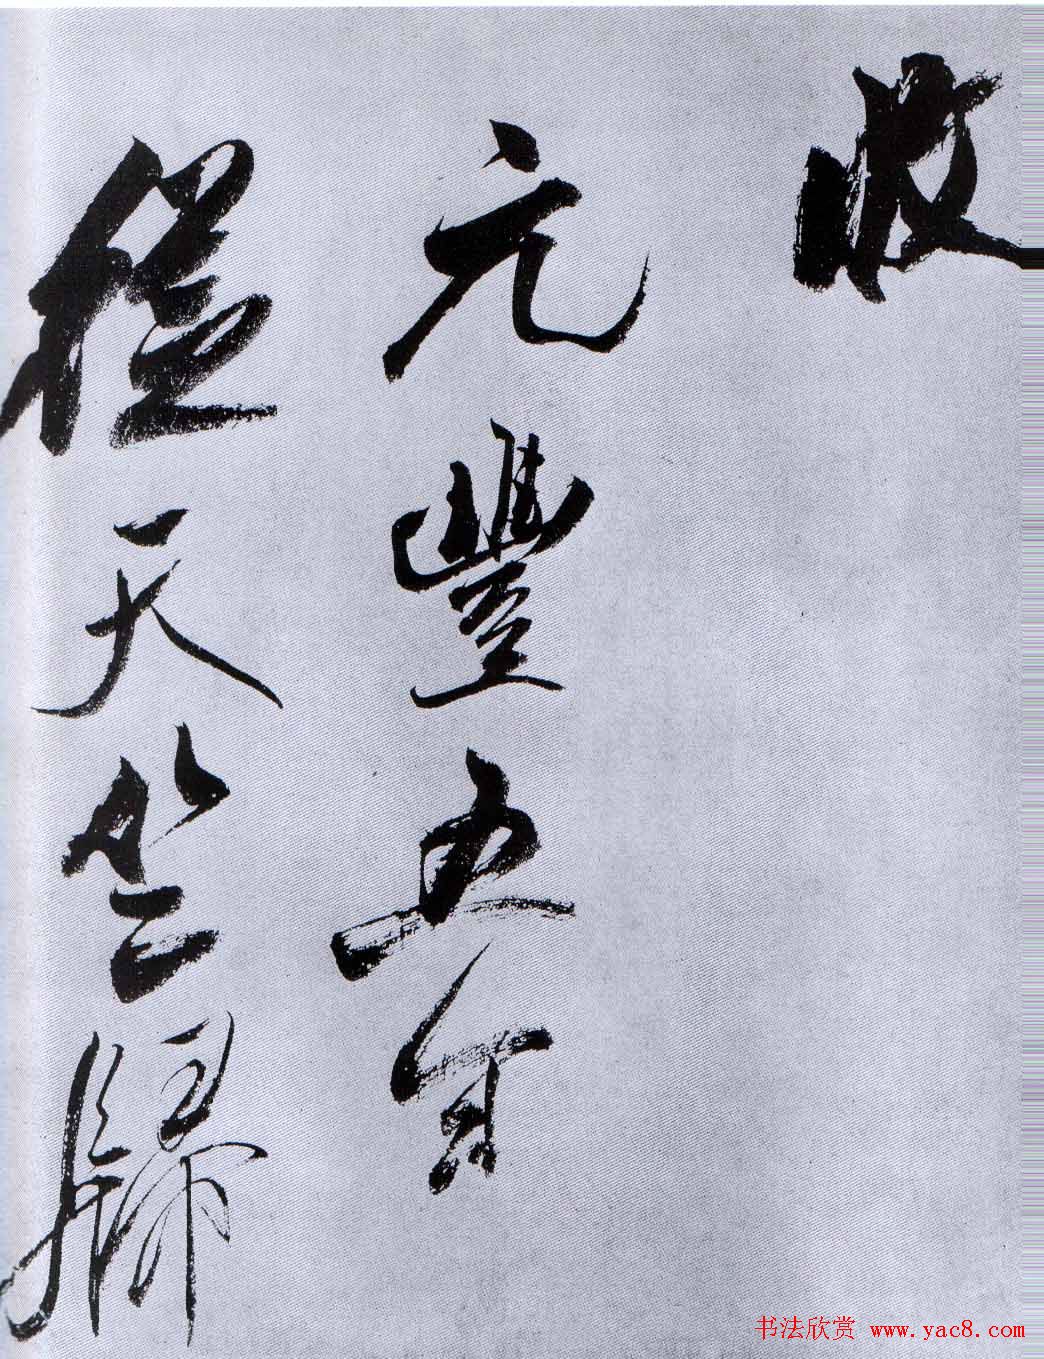 元豐五年
從天竺歸
书法欣赏 www.yac8.com